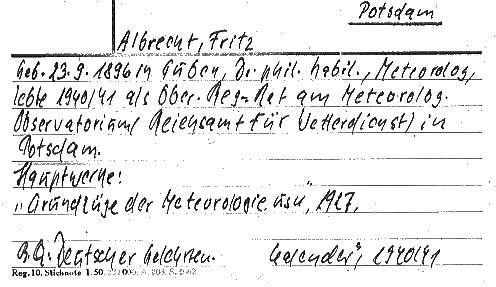 Potsdam
Albrecht, Fritz
Geb. 23.9. 1896 in Guben, Dr. phil. habil., Meteorolog,
lebte 1940/41 als Ober-Reg-Rat am Meteorolog.
Observatorium (Reichsamt für Wetterdienst) in
Potsdam.
Hauptwerke:
"Grundzüge der Meteorologie usw", 1927.
Deutscher Gelehrten. Kalender", 1940/41
Reg. 10. Sticknote 1. 50.